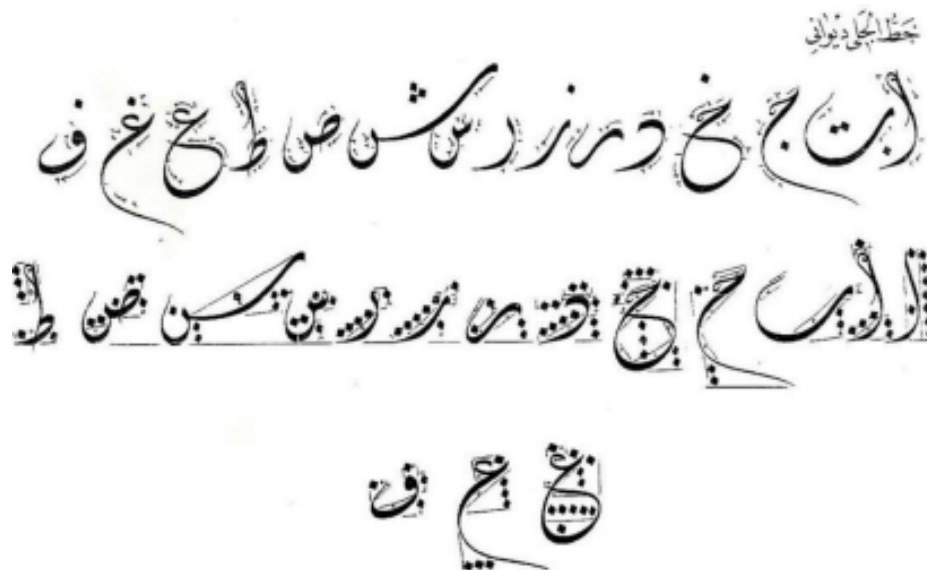 خط الجلي ديواني
ا ت ج خ د ر ز ر س ش ص ط ع غ ف
ا ا ب ح ح د ر ر ر س س ص ط
ع ع ف